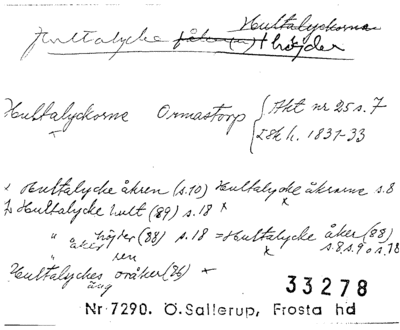 Hultalyckorna
Hultalycke åkern(n) + höjder
Hultalyckorne Ormastorp { Akt nr 25 s. 7
Lsk h. 1831-33
Hultalycke åkren (s.10) Hultalycke åkrarne s.8
Hultalycke hult (89) s.18 x
" höjder (88) s.18 = Hultalycke åker (88)
åker ren s.8, s.9 o s.18
Hultalyckes oråker (26)
äng
33278
Nr 7290. Ö. Sallerup, Frosta hd